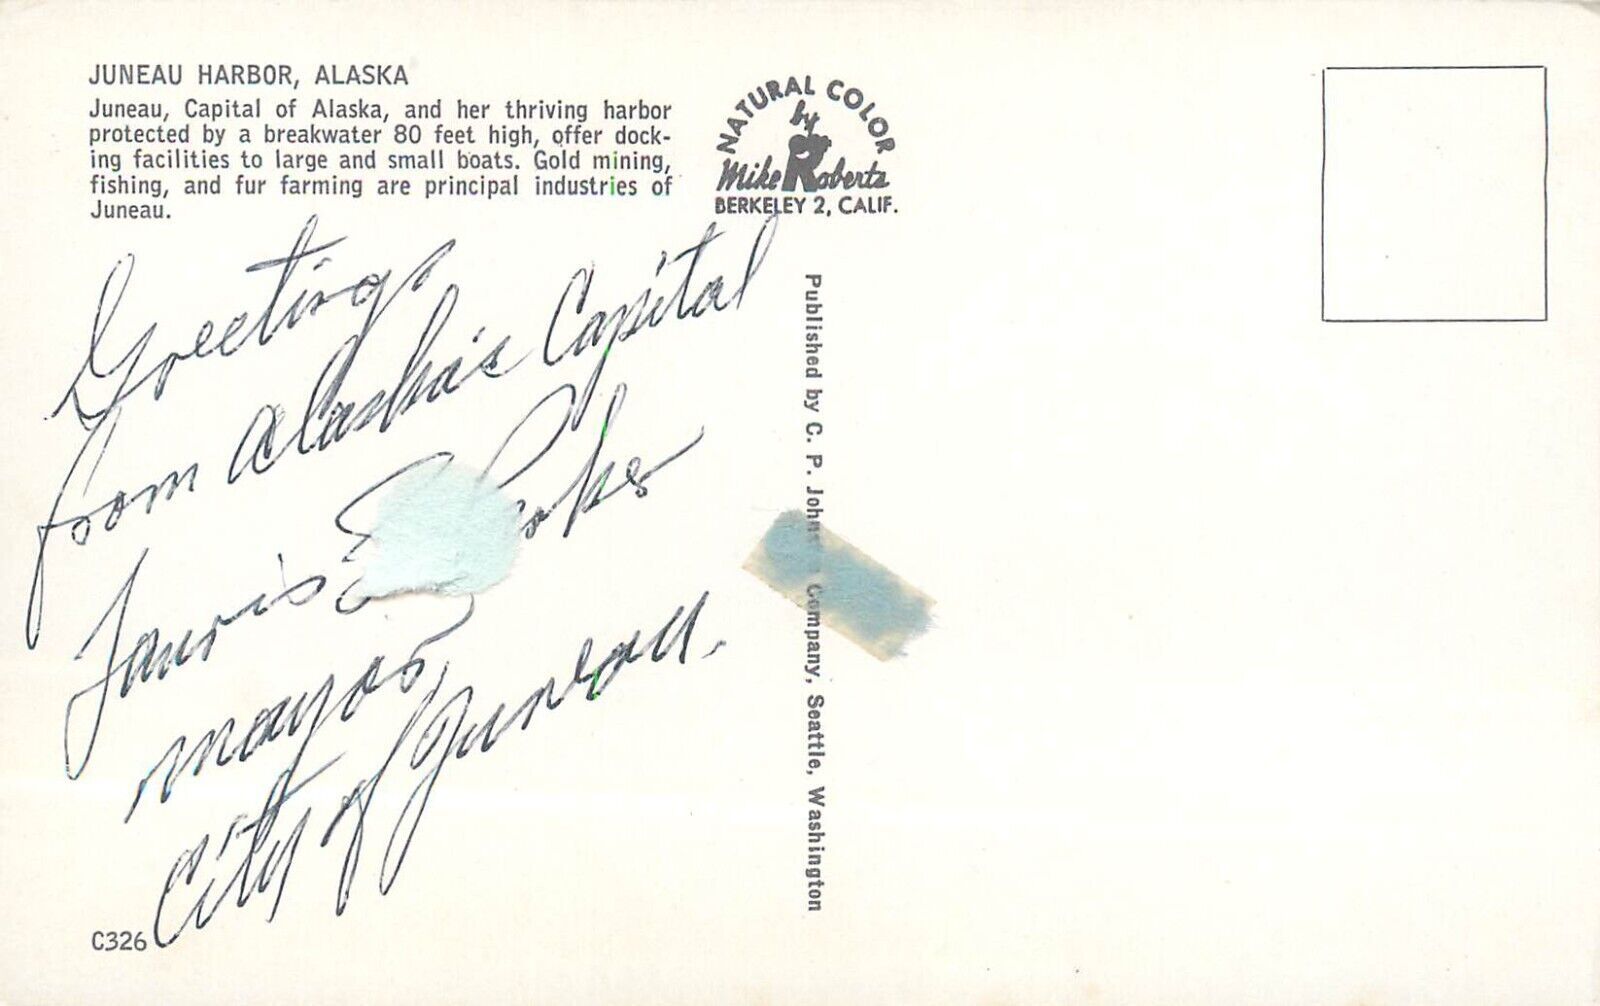 JUNEAU HARBOR, ALASKA
Juneau, Capital of Alaska, and her thriving harbor
protected by a breakwater 80 feet high, offer dock-
ing facilities to large and small boats. Gold mining,
fishing, and fur farming are principal industries of
Juneau.
NATURAL COLOR
by
Mike Roberts
BERKELEY 2, CALIF.
Greetings
from Alaska's Capital
Lauris
Mayor,
City of Juneau.
Published by C. P. Johns Company, Seattle, Washington
C326